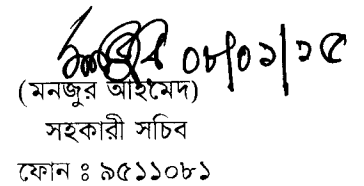 ০৮/০১/১৫
(মনজুর আহমেদ)
সহকারী সচিব
ফোন ঃ ৯৫১১০৮১